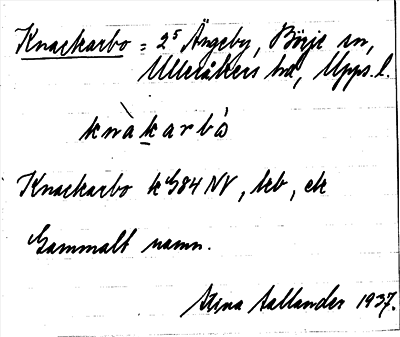 Knackarbo = 2⁵ Ängeby, Börje sn,
Ulleråkers hd, Upps. l.
knàkarbó
Knackarbo k G84 NV, tkb, ek
Gammalt namn.
Stina Aallander 1937.